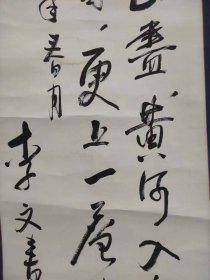 盡黄河入
更上一層
年春月
李文